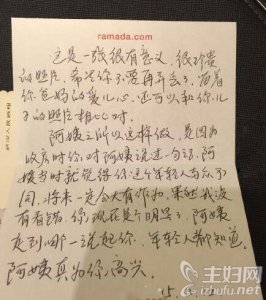 ramada.com
这是一张很有意义，很珍贵
的照片，希望你不要再弄丢了，留着
你爸妈的爱心，还可以和你儿
子的照片相心对
阿姨之所以这样做，是因为
收房时你对阿姨说过一句话，阿
姨当时就觉得你这个年轻人与众不
同，将来一定会大有作为，果然我没
有看错，你现在是个明星了，阿姨
走到哪一说起你，年轻人都知道，
阿姨真为你高兴。
主妇网
izhufu.net